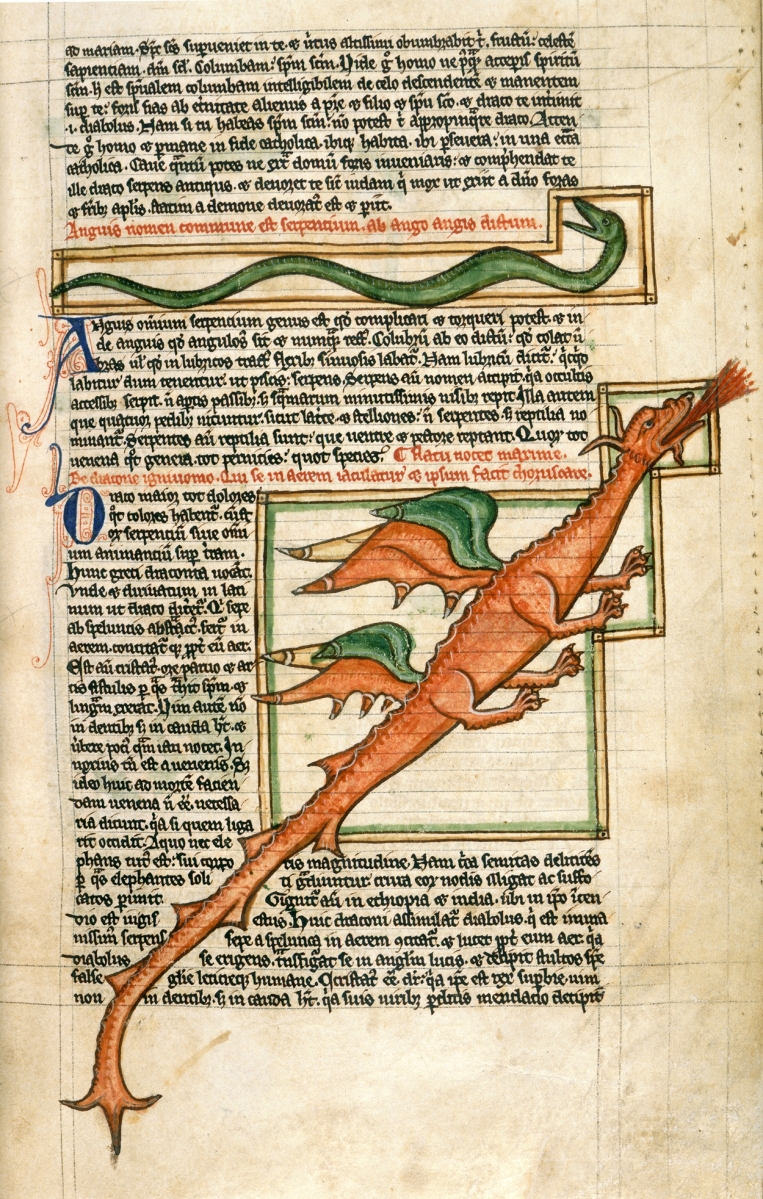 ad mariam. Spc scs superveniet in te. et virtus altissimi obumbrabit t. fructu: celeste
sapienciam. dni sci. Columbam: spm scm. Vide g homo ne pqm accepis spiritu
scm. h est spualem columbam intelligibilem de celo descendente et manentem
sup te: foris fias ab eternitate alienus a pre et filio et spu sco. et draco te intimit
.i. diabolus. Nam si tu habeas spm scm: no potest t appropinqre draco. Atten
te g homo et permane in fide catholica. ibiq habita. ibi persevera: in una eccla
catholica. Cave qntu potes ne ext domu foris inveniaris: et comphendat te
ille draco serpens antiquus. et devoret te sic iudam q mox ut exiit a dno foras
et frib aplis. statim a demone devorat est et piit.
Anguis nomen commune est serpentium. ab ango angis dictum.
Anguis omnium serpencium genus est qd complicari et torqueri potest. et in
de anguis qd angulosus sit et nunq rect. Colubru ab eo dictu: qd colat u
bras ul qd in lubricos tract flexib sinuosis labat. Nam lubricu dicit: qcqd
labitur dum tenentur. ut pisces: serpens. Serpens au nomen accipit. qa occultis
accessib serpit. n aptis passib: s squamarum minutissimis nisib repit. Illa autem
que quatuor pedib nituntur. sicut lacte et stelliones: n serpentes. s reptilia no
minant. Serpentes au reptilia sunt: que ventre et pectore reptant. Quor tot
venena qt genera. tot pernicies: quot species. Flatu nocet maxime.
De dracone ignivomo. qui se in aerem iaculatur et ipsum facit choruscare.
Draco maior tot dolores
qt colores habent. cunct
or serpenciu sive omi
um animanciu sup tram.
Hunc greci draconta vocat.
Vnde et dirivatum in lati
num ut draco dicet. Q sepe
ab speluncis abstract. fert in
aerem. concitat q ppt eu aer.
Est au cristat. ore parvo et ar
tis fistulis p qs thit spm. et
lingm exerat. Vim aute no
in dentib s in cauda ht. et
vbere poci qm ictu nocet. In
noxius tn est a venenis. S
ideo huic ad morte facien
dam venena n ee necessa
ria dicunt. qa si quem liga
rit occidit. A quo nec ele
phans tut est: sui corpo ris magnitudine. Nam circa semitas delitecens
p qs elephantes soli ti gradiuntur crura eor nodis illigat ac suffo
catos perimit. Gignit au in ethiopia et india. ubi in ipo icen
dio est iugis estus. Huic draconi assimilat diabolus. q est imma
nissimus serpens sepe a spelunca in aerem concitat. et lucet ppt eum aer. qa
diabolus se erigens. transfigat se in anglm lucis. et decipit stultos spe
false glie leticieq humane. Cristat ee dr: qa ipe est rex superbie. vim
non in dentib. s in cauda ht. qa suis virib perditis mendacio decipit